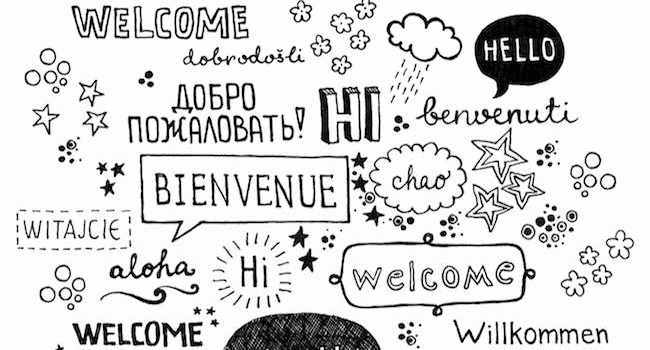 WELCOME
HELLO
dobrodošli
ДОБРО
ПОЖАЛОВАТЬ!
HI
benvenuti
BIENVENUE
chao
WITAJCIE
aloha
Hi
welcome
WELCOME
Willkommen